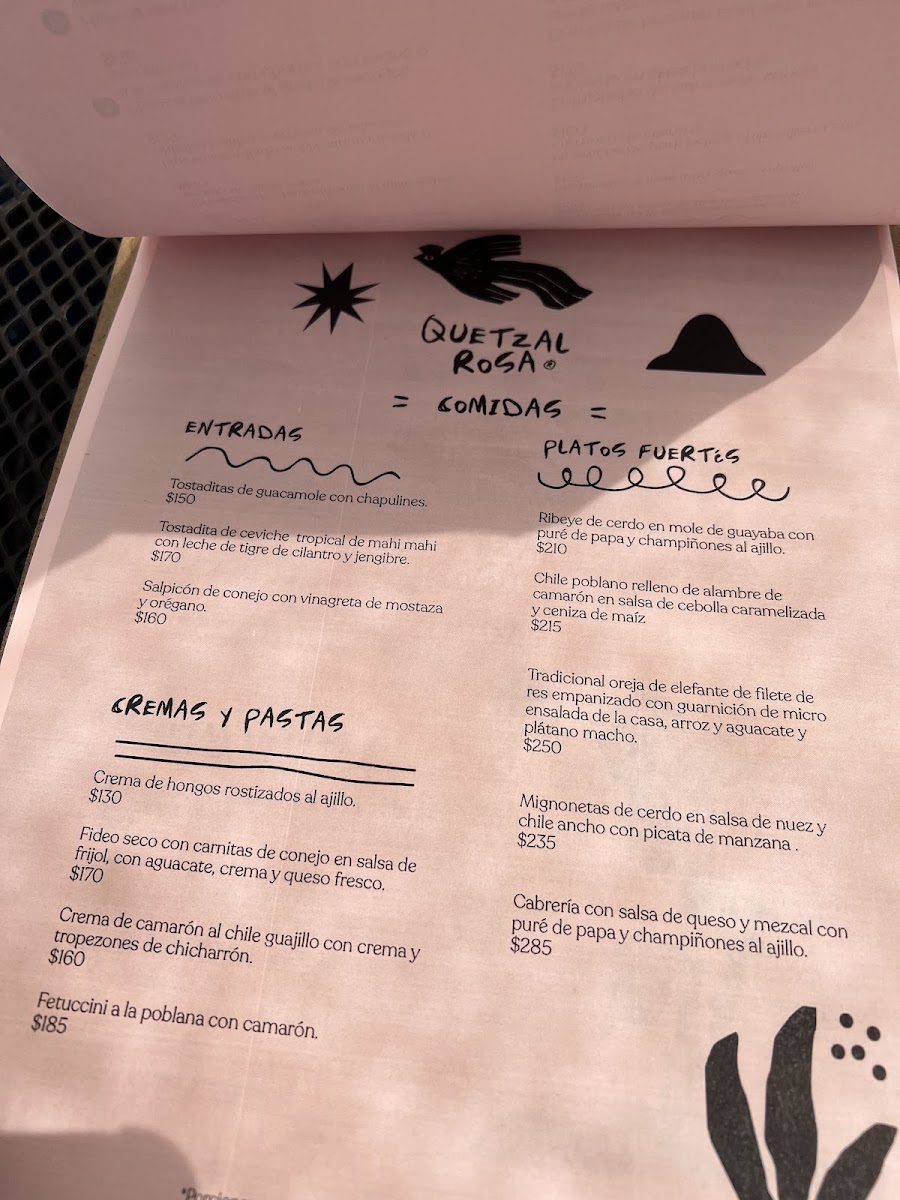 QUETZAL
ROSA®
= COMIDAS =
ENTRADAS
Tostaditas de guacamole con chapulines.
$150
Tostadita de ceviche tropical de mahi mahi
con leche de tigre de cilantro y jengibre.
$170
Salpicón de conejo con vinagreta de mostaza
y orégano.
$160
CREMAS Y PASTAS
Crema de hongos rostizados al ajillo.
$130
Fideo seco con carnitas de conejo en salsa de
frijol, con aguacate, crema y queso fresco.
$170
Crema de camarón al chile guajillo con crema y
tropezones de chicharrón.
$160
Fetuccini a la poblana con camarón.
$185
PLATOS FUERTES
Ribeye de cerdo en mole de guayaba con
puré de papa y champiñones al ajillo.
$210
Chile poblano relleno de alambre de
camarón en salsa de cebolla caramelizada
y ceniza de maíz
$215
Tradicional oreja de elefante de filete de
res empanizado con guarnición de micro
ensalada de la casa, arroz y aguacate y
plátano macho.
$250
Mignonetas de cerdo en salsa de nuez y
chile ancho con picata de manzana .
$235
Cabrería con salsa de queso y mezcal con
puré de papa y champiñones al ajillo.
$285